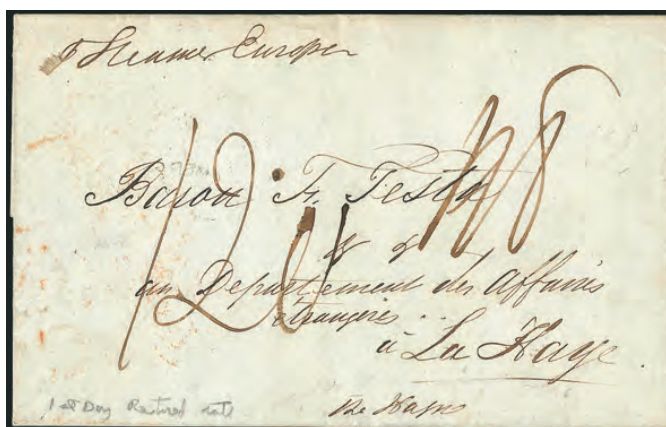 p Steamer Europa
Baron F. Testa
& &
au Departement des Affaires
etrangeres
à La Haye
1st Day Restored rate
The Hague